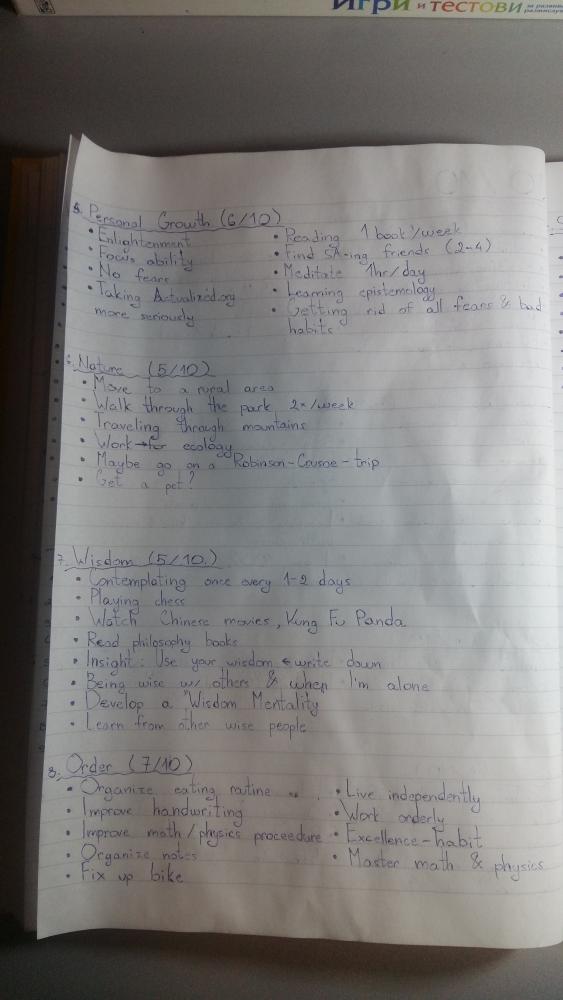 ИГРИ и ТЕСТОВИ
5. Personal Growth (6/10)
• Enlightenment
• Focus ability
• No fears
• Taking Actualized.org
more seriously
• Reading 1 book/week
• Find SA-ing friends (2-4)
• Meditate 1hr/day
• Learning epistemology
• Getting rid of all fears & bad
habits
6. Nature (5/10)
• Move to a rural area
• Walk through the park 2x/week
• Traveling through mountains
• Work → for ecology
• Maybe go on a Robinson-Cousoe-trip
• Get a pet?
7. Wisdom (5/10)
• Contemplating once every 1-2 days
• Playing chess
• Watch Chinese movies, Kung Fu Panda
• Read philosophy books
• Insight: Use your wisdom & write down
• Being wise w/ others & when I'm alone
• Develop a "Wisdom Mentality
• Learn from other wise people
8. Order (7/10)
• Organize eating routine
• Improve handwriting
• Improve math/physics proceedure
• Organize notes
• Fix up bike
• Live independently
• Work orderly
• Excellence-habit
• Master math & physics